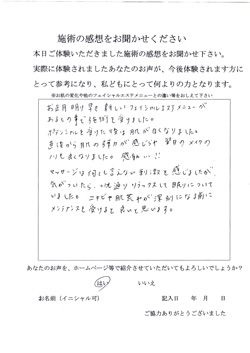 施術の感想をお聞かせください
本日ご体験いただきました施術の感想をお聞かせ下さい。
実際に体験されましたあなたのお声が、今後体験されます方に
とって参考になり、私どもにとって何よりの力となります。
※お肌の変化や他のフェイシャルエステメニューとの違い等をおしえて下さい
お正月明け早々新しいフェイシャルエステメニューが
あるとの事で施術を受けました。
ハリが感じられ翌日のメイクの
ノリも良くなりました。感動…!!
マッサージは何とも言えない刺激を感じましたが、
気がついたら、心地よくリラックスして眠りについて
いました。ニキビや肌荒れが深刻になる前に
メンテナンスを受けると良いと思います。
あなたのお声を、ホームページ等で紹介させていただいてもよろしいでしょうか?
はい いいえ
お名前(イニシャル可) 記入日 年 月 日
ご協力ありがとうございました